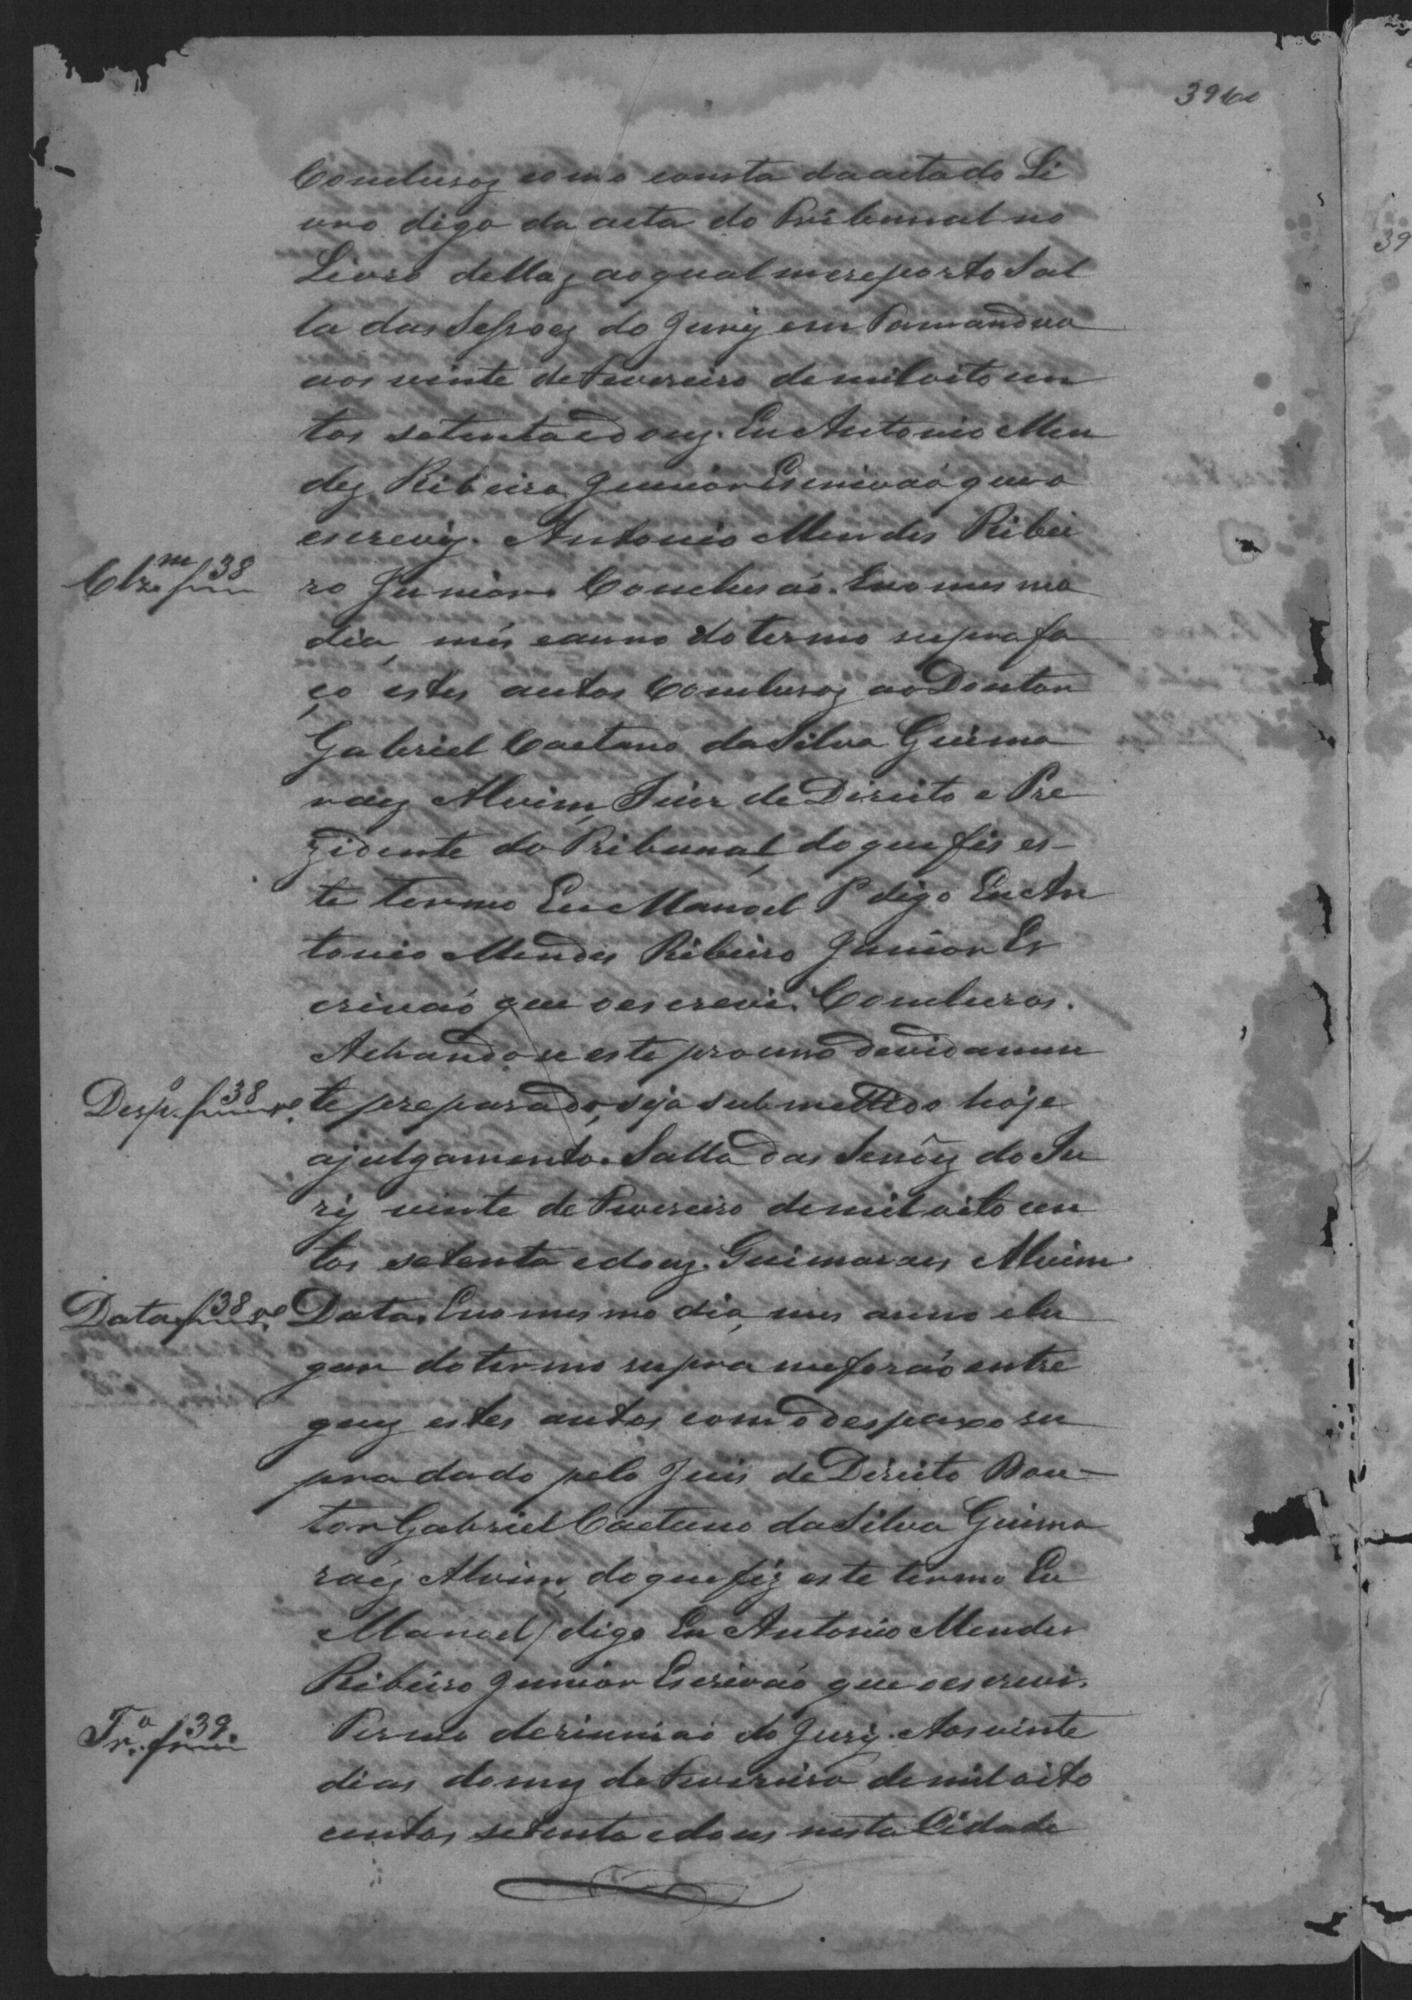 Concluzoz como consta da acta do Li
vro digo da acta do Tribunal no
Livro dellaz ao qual me reporto Sal
la das Sessoez do Jury em Tamandua
aos vinte de Fevereiro de mil oito cen
tos setenta e douz. Eu Antonio Men
dez Ribeiro Junior Escrivaó que o
escrevy. Antonio Mendes Ribei
Clzm f 38
ro Junior. Concluzaó. E no mesmo
dia, mês e anno do termo supra fa
ço estes autos Concluzoz ao Doutor
Gabriel Caetano da Silva Guima
raez Alvim, Juiz de Direito e Pre
zidente do Tribunal, do que fis es-
te termo Eu Manoel P digo Eu An
tonio Mendes Ribeiro Junior Es
crivaó que o escrevi. Concluzos.
Achando-se este processo devidamen
Despo. f 38 vo.
te preparado, seja submettido hoje
a julgamento. Salla das Sessoẽz do Ju
ry vinte de Fevereiro de mil oito cen
tos setenta e douz. Guimaraes Alvim.
Data f 38 vo.
Data. E no mesmo dia, mes anno e lu
gar do termo supra me foraó entre
guez estes autos com o despaxo su
pra dado pelo Juis de Direito Dou-
tor Gabriel Caetano da Silva Guima
raéz Alvim, do que fiz este termo Eu
Manoel / digo Eu Antonio Mendes
Ribeiro Junior Escrivaó que o escrevi.
Tro. f 39.
Termo de riuniaó do Jury. Aos vinte
dias do mez de Fevereiro de mil oito
centos setenta e dous nesta Cidade